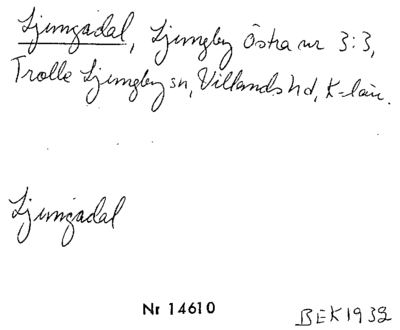 Ljungadal, Ljungby Östra nr 3:3,
Trolle Ljungby sn, Villands hd, K-län.
Ljungadal
Nr 14610
BEK1932